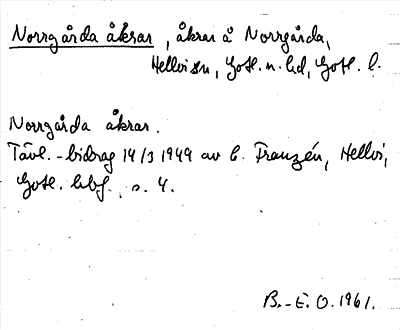 Norrgårda åkrar, åkrar å Norrgårda,
Hellvi sn, Gotl. n. hd, Gotl. l.
Norrgårda åkrar.
Tävl.-bidrag 14/3 1949 av C. Franzén, Hellvi,
Gotl. hbf., s. 4.
B.-E. O. 1961.